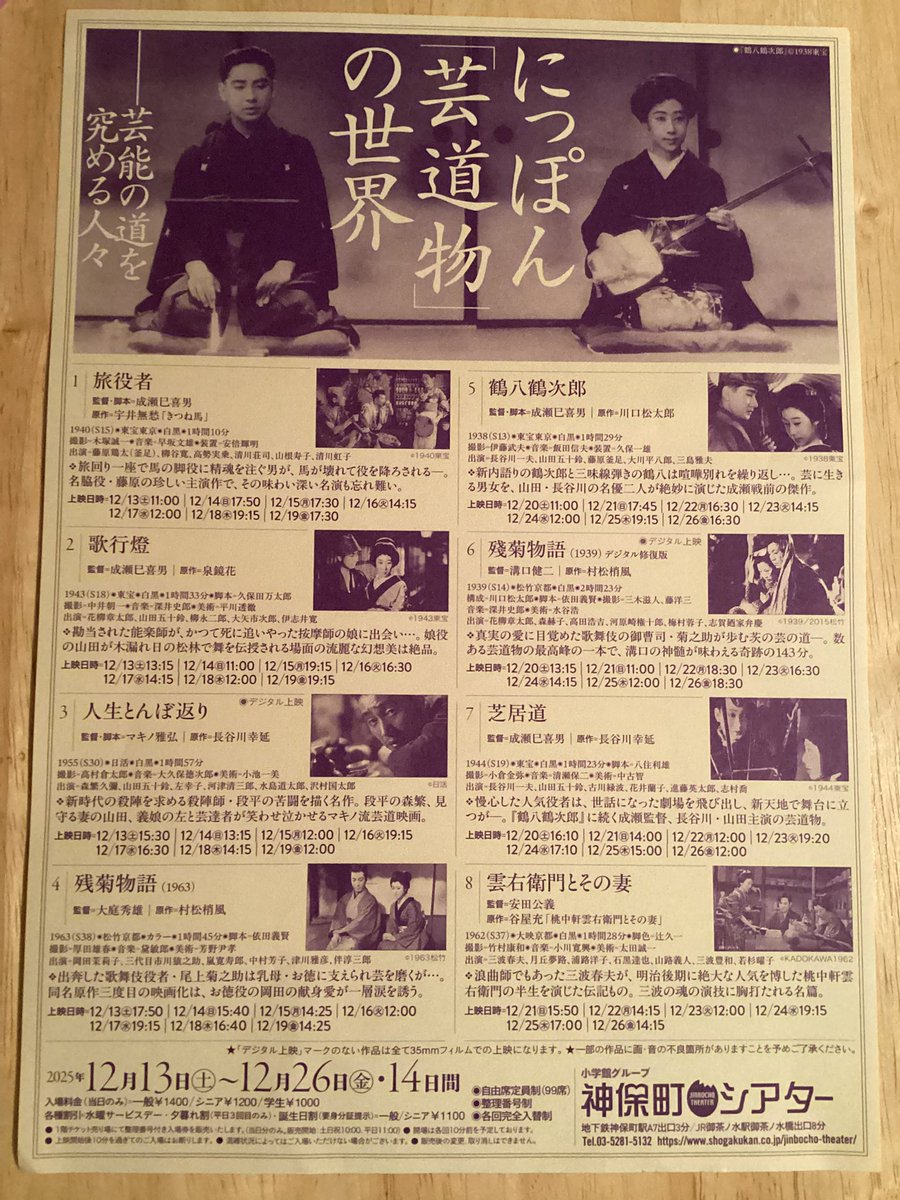 ◉『鶴八鶴次郎』©1938東宝
にっぽん
「芸道物」
の世界
──芸能の道を
究める人々
1 旅役者
監督・脚本=成瀬巳喜男
原作=宇井無愁「きつね馬」
1940(S15)＊東宝東京＊白黒＊1時間10分
撮影=木塚誠一＊音楽=早坂文雄＊装置=安倍輝明
出演=藤原鶏太(釜足)、柳谷寛、高勢実乗、清川荘司、山根寿子、清川虹子
©1940東宝
❖旅回り一座で馬の脚役に精魂を注ぐ男が、馬が壊れて役を降ろされる―。
名脇役・藤原の珍しい主演作で、その味わい深い名演も忘れ難い。
上映日時=12/13㊏11:00｜12/14㊐17:50｜12/15㊊17:30｜12/16㊋14:15
12/17㊌12:00｜12/18㊍19:15｜12/19㊎17:30
2 歌行燈
監督=成瀬巳喜男｜原作=泉鏡花
1943(S18)＊東宝＊白黒＊1時間33分＊脚本=久保田万太郎
撮影=中井朝一＊音楽=深井史郎＊美術=平川透徹
出演=花柳章太郎、山田五十鈴、柳永二郎、大矢市次郎、伊志井寛
©1943東宝
❖勘当された能楽師が、かつて死に追いやった按摩師の娘に出会い…。娘役
の山田が木漏れ日の松林で舞を伝授される場面の流麗な幻想美は絶品。
上映日時=12/13㊏13:15｜12/14㊐11:00｜12/15㊊19:15｜12/16㊋16:30
12/17㊌14:15｜12/18㊍12:00｜12/19㊎19:15
3 人生とんぼ返り
◉デジタル上映
監督・脚本=マキノ雅弘｜原作=長谷川幸延
1955(S30)＊日活＊白黒＊1時間57分
撮影=高村倉太郎＊音楽=大久保徳次郎＊美術=小池一美
出演=森繁久彌、山田五十鈴、左幸子、河津清三郎、水島道太郎、沢村国太郎
©日活
❖新時代の殺陣を求める殺陣師・段平の苦闘を描く名作。段平の森繁、見
守る妻の山田、義娘の左と芸達者が笑わせ泣かせるマキノ流芸道映画。
上映日時=12/13㊏15:30｜12/14㊐13:15｜12/15㊊12:00｜12/16㊋19:15
12/17㊌16:30｜12/18㊍14:15｜12/19㊎12:00
4 残菊物語(1963)
監督=大庭秀雄｜原作=村松梢風
1963(S38)＊松竹京都＊カラー＊1時間45分＊脚本=依田義賢
撮影=厚田雄春＊音楽=黛敏郎＊美術=芳野尹孝
出演=岡田茉莉子、三代目市川猿之助、嵐寛寿郎、中村芳子、津川雅彦、伴淳三郎
©1963松竹
❖出奔した歌舞伎役者・尾上菊之助は乳母・お徳に支えられ芸を磨くが…。
同名原作三度目の映画化は、お徳役の岡田の献身愛が一層涙を誘う。
上映日時=12/13㊏17:50｜12/14㊐15:40｜12/15㊊14:25｜12/16㊋12:00
12/17㊌19:15｜12/18㊍16:40｜12/19㊎14:25
5 鶴八鶴次郎
監督・脚本=成瀬巳喜男｜原作=川口松太郎
1938(S13)＊東宝東京＊白黒＊1時間29分
撮影=伊藤武夫＊音楽=飯田信夫＊装置=久保一雄
出演=長谷川一夫、山田五十鈴、藤原釜足、大川平八郎、三島雅夫
©1938東宝
❖新内語りの鶴次郎と三味線弾きの鶴八は喧嘩別れを繰り返し…。芸に生き
る男女を、山田・長谷川の名優二人が絶妙に演じた成瀬戦前の傑作。
上映日時=12/20㊏11:00｜12/21㊐17:45｜12/22㊊16:30｜12/23㊋14:15
12/24㊌12:00｜12/25㊍19:15｜12/26㊎16:30
6 殘菊物語(1939)デジタル修復版
◉デジタル上映
監督=溝口健二｜原作=村松梢風
1939(S14)＊松竹京都＊白黒＊2時間23分
構成=川口松太郎＊脚本=依田義賢＊撮影=三木滋人、藤洋三
音楽=深井史郎＊美術=水谷浩
出演=花柳章太郎、森赫子、高田浩吉、河原崎権十郎、梅村蓉子、志賀廼家弁慶
©1939/2015松竹
❖真実の愛に目覚めた歌舞伎の御曹司・菊之助が歩む茨の芸の道―。数
ある芸道物の最高峰の一本で、溝口の神髄が味わえる奇跡の143分。
上映日時=12/20㊏13:15｜12/21㊐11:00｜12/22㊊18:30｜12/23㊋16:30
12/24㊌14:15｜12/25㊍12:00｜12/26㊎18:30
7 芝居道
監督=成瀬巳喜男｜原作=長谷川幸延
1944(S19)＊東宝＊白黒＊1時間23分＊脚本=八住利雄
撮影=小倉金弥＊音楽=清瀬保二＊美術=中古智
出演=長谷川一夫、山田五十鈴、古川緑波、花井蘭子、進藤英太郎、志村喬
©1944東宝
❖慢心した人気役者は、世話になった劇場を飛び出し、新天地で舞台に立
つが―。『鶴八鶴次郎』に続く成瀬監督、長谷川・山田主演の芸道物。
上映日時=12/20㊏16:10｜12/21㊐14:00｜12/22㊊12:00｜12/23㊋19:20
12/24㊌17:10｜12/25㊍15:00｜12/26㊎12:00
8 雲右衛門とその妻
監督=安田公義
原作=谷屋充「桃中軒雲右衛門とその妻」
1962(S37)＊大映京都＊白黒＊1時間28分＊脚色=辻久一
撮影=竹村康和＊音楽=小川寛興＊美術=太田誠一
出演=三波春夫、月丘夢路、浦路洋子、石黒達也、山路義人、三波豊和、若杉曜子
©KADOKAWA1962
❖浪曲師でもあった三波春夫が、明治後期に絶大な人気を博した桃中軒雲
右衛門の半生を演じた伝記もの。三波の魂の演技に胸打たれる名篇。
上映日時=12/21㊐15:50｜12/22㊊14:15｜12/23㊋12:00｜12/24㊌19:15
12/25㊍17:00｜12/26㊎14:15
★「デジタル上映」マークのない作品は全て35mmフィルムでの上映になります。★一部の作品に画・音の不良箇所がありますことを予めご了承ください。
2025年12月13日㊏〜12月26日㊎・14日間
入場料金(当日のみ)=一般¥1400/シニア¥1200/学生¥1000
各種割引=水曜サービスデー・夕暮れ割(平日3回目のみ)・誕生日割(要身分証提示)=一般/シニア¥1100
◉自由席定員制(99席)
◉整理番号制
◉各回完全入替制
●1階チケット売り場にて整理番号付き入場券を販売いたします。(当日分のみ。販売開始:土日祝10:00、平日11:00) ●開場は各回10分前を予定しております。
●上映開始後10分を過ぎてのご入場はお断りします。●混雑状況によってはご入場いただけない場合がございます。●販売後の変更、取り消しはできません。
小学館グループ
神保町シアター
JINBOCHO THEATER
地下鉄神保町駅A7出口3分/JR御茶ノ水駅御茶ノ水橋出口8分
Tel.03-5281-5132 https://www.shogakukan.co.jp/jinbocho-theater/